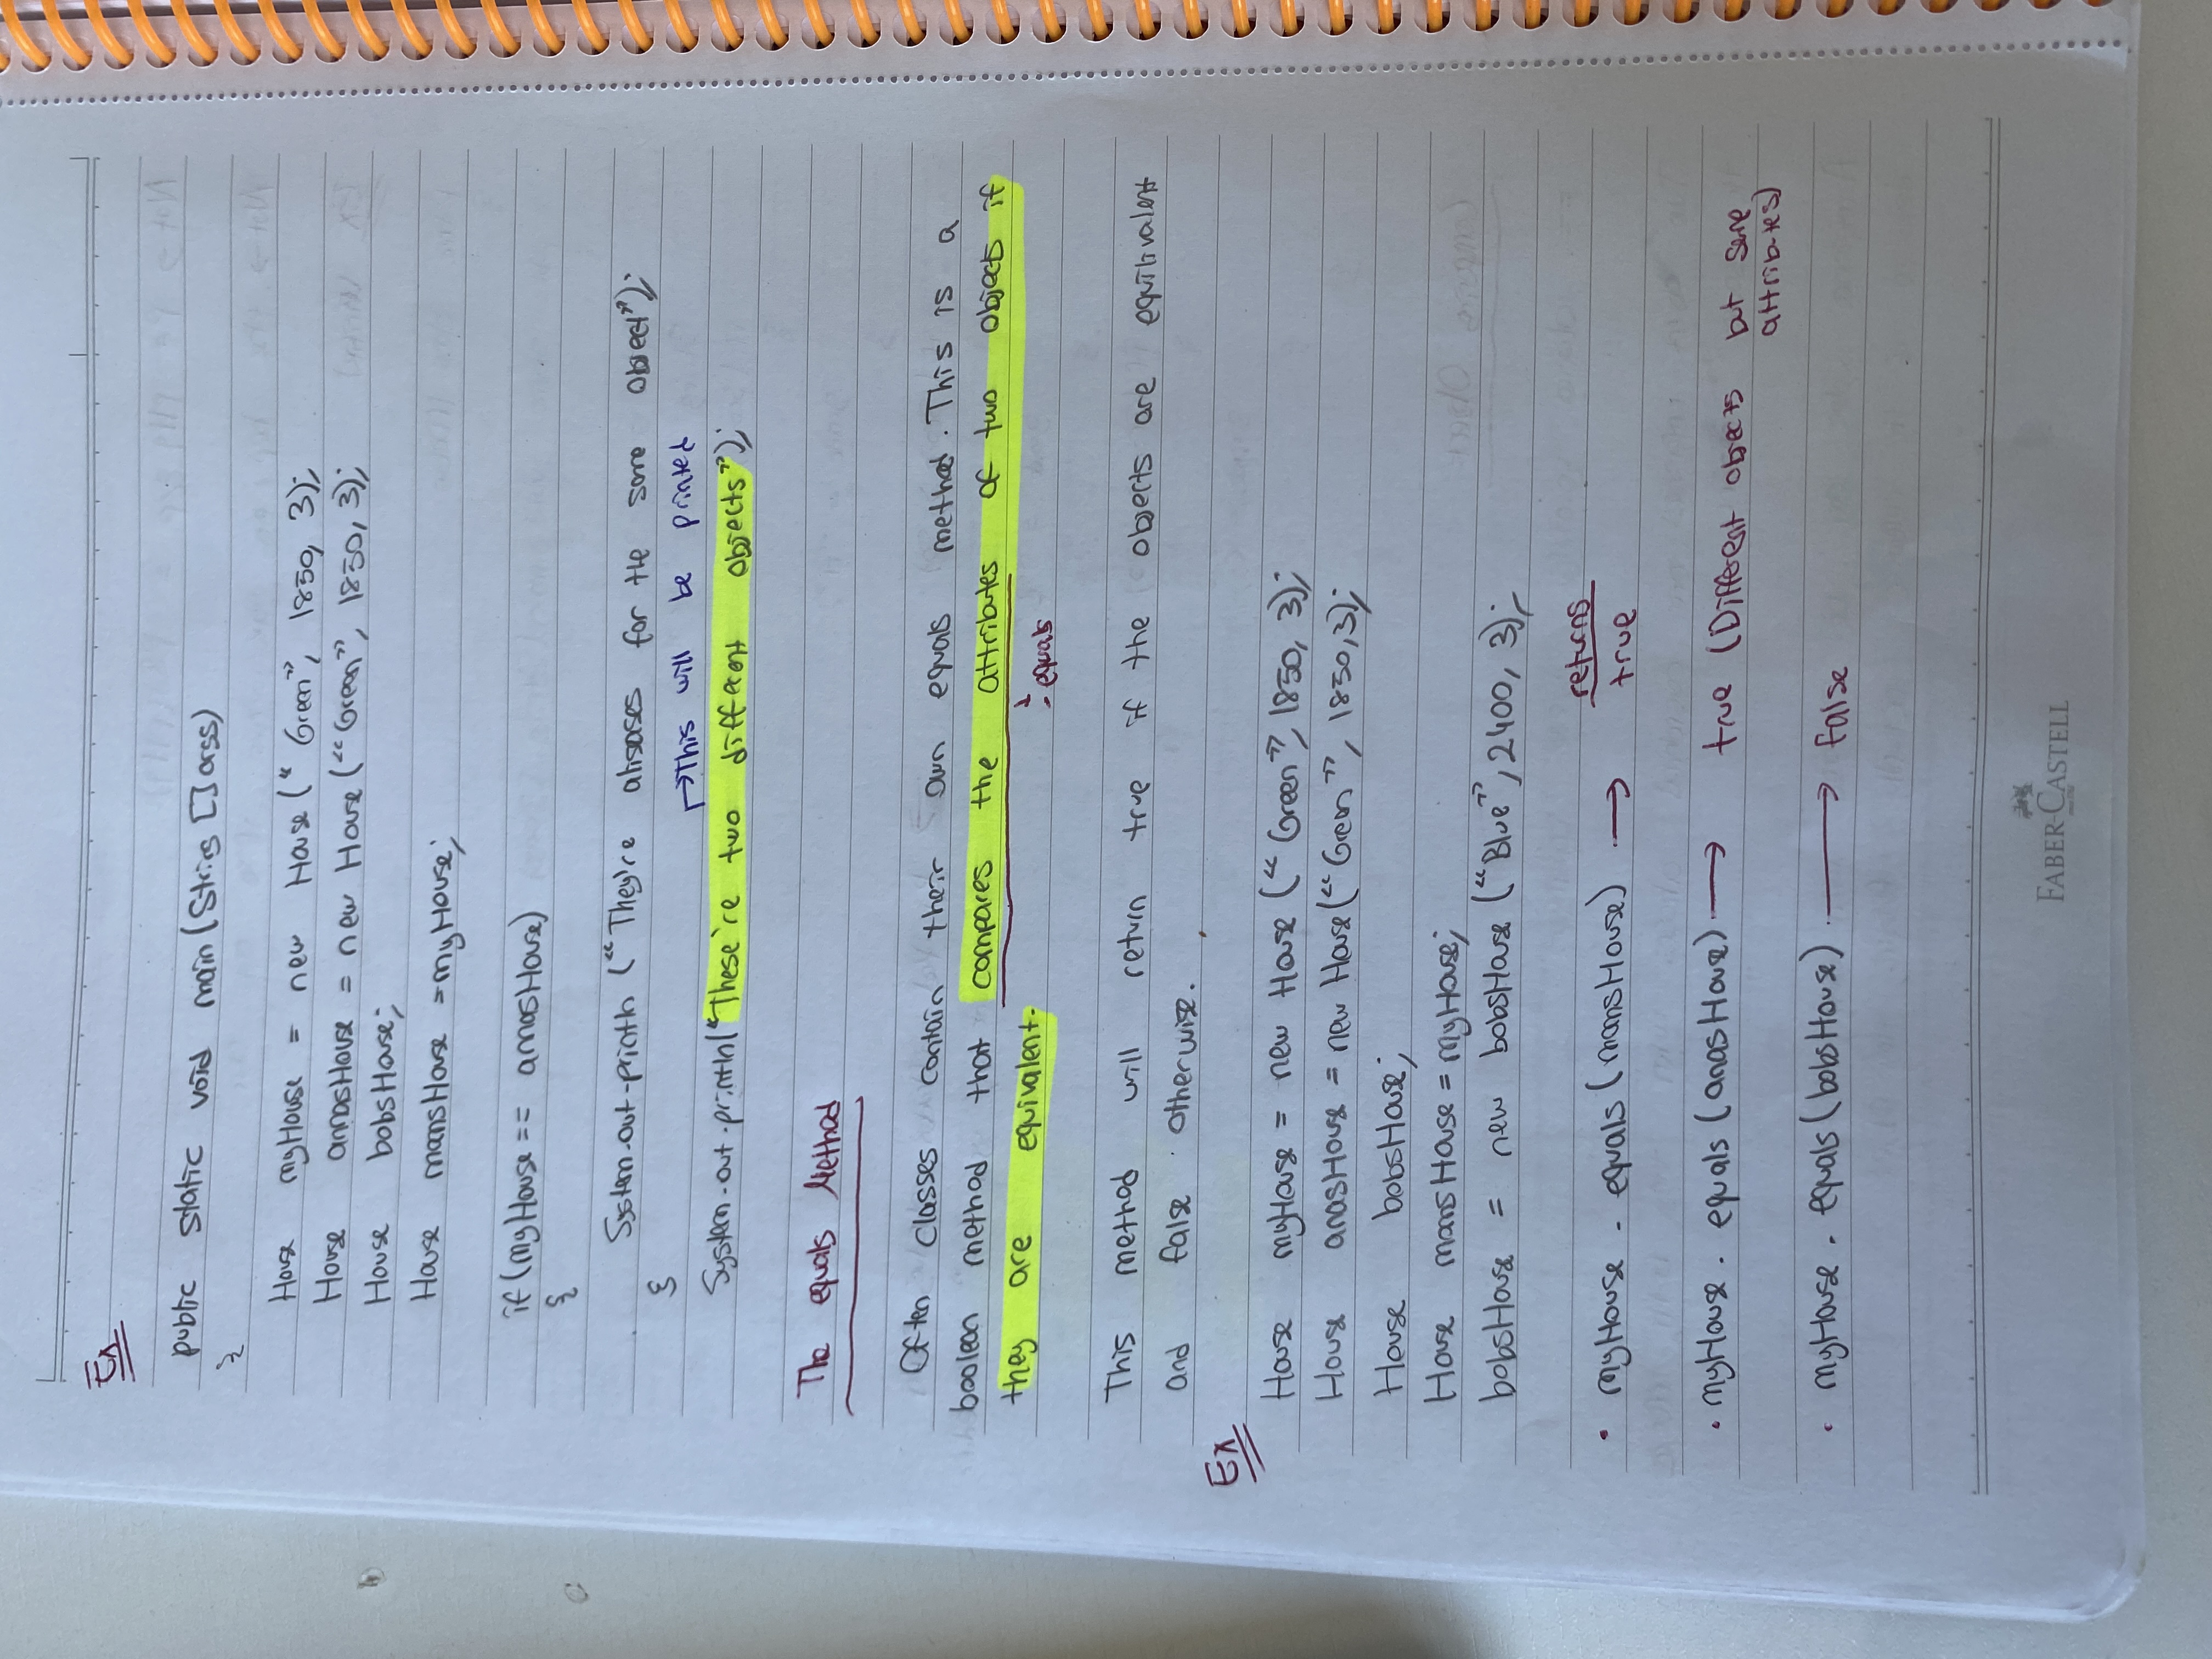 Ex
public static void main (String [] args)
}
House myHouse = new House (“ Green”, 1850, 3);
House annasHouse = new House (“Green”, 1850, 3);
House bobsHouse;
House momsHouse = myHouse;
if (myHouse == annasHouse)
{
System.out.println (“They're alisases for the same object”);
{
→This will be printed
System.out.println(“These're two different objects”);
The equals Method
Often classes contain their own equals method. This is a
boolean method that compares the attributes of two objects if
they are equivalent.
. equals
This method will return true if the objects are equilivalent
and false otherwise.
Ex
House myHouse = new House (“ Green”, 1850, 3);
House anasHouse = new House (“Green”, 1850, 3);
House bobsHouse;
House momsHouse = myHouse;
bobsHouse = new bobsHouse (“Blue”, 2400, 3);
returns
• myHouse . equals (momsHouse) → true
• myHouse . equals (anasHouse) → true (Different objects but same
attributes)
• myHouse . equals (bobsHouse) → false
FABER-CASTELL